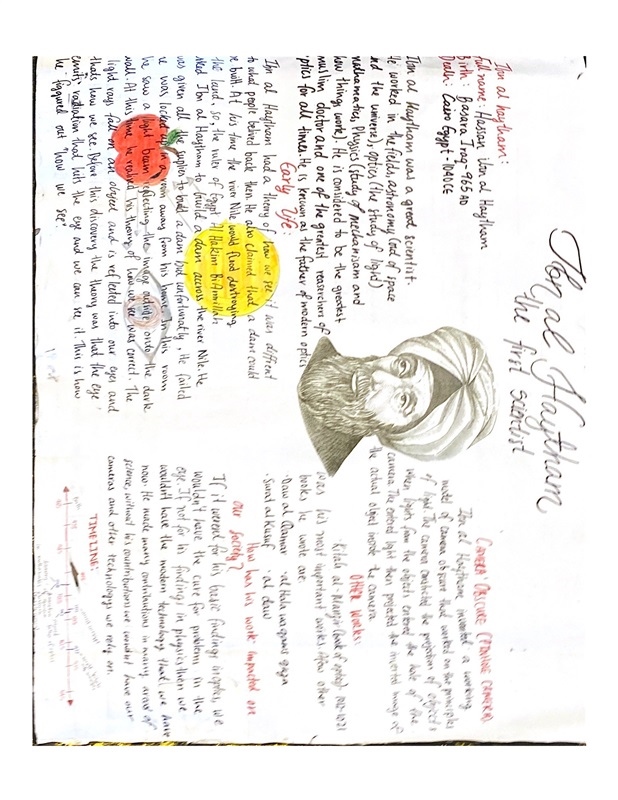 Ibn al Haytham
the first scientist
Ibn al haytham:
full name: Hassan ibn al Haytham
Birth: Basara Iraq 965 AD
Death: Cairo Egypt
Ibn al Haytham was a great scientist.
He worked in the fields, astronomy (out of space
and the universe), optics (the study of light)
mathematics, Physics (study of mechanisam and
how things work). He is considered to be the greatest
muslim doctor and one of the greatest researchers of
optics for all times. He is known as the father of modern optics
Early life:
Ibn al Haytham had a theory of how we see it was diffrent
to what people belived back then. He also claimed that a dam could
be built. At his time the river Nile would flood destroying
the land, so the ruler of Egypt Al Hakim BiAmrillah
asked Ibn al Haytham to build a dam accross the river Nile. He
was given all the suplies to build a dam but unfortunatly, he failed
he was locked up in a room away from his home. In this room
he saw a light beam reflecting the image outside onto the dark
wall. At this time, he realised his theory of how we see was correct. The
light rays fall on are object and is reflected into our eyes and
thats how we see. Before this discovery the theory was that the eye
emits radiation that hits the eye and we can see it. This is how
he figgured out "how we see".
CAMERA OBSCURE (PINHOLE CAMERA)
Ibn al Haytham invented a working
model of camera obscure that worked on the principles
of light. The camera the projection of objects
when lights from the objects entered the hole of the
camera. The entered light then projected the inverted image of
the actual object inside the camera.
OTHER WORKS:
Kitab al Manazir (book of optics) 1011-1021
was his most important works. Few other
books he wrote are.
· Daw al Qamar · al Hala wa qaws qaza
· Surat al Kusuf · al daw
How has his work impacted are
our society?
If it werend for his basic findings in optics, we
wouldn't have the cure for problems in the
eye. If not for his findings in physics then we
wouldn't have the modern technology that we have
now. He made many contributions in many areas of
science, without his countributions we wouldnt have our
camera and other technology we rely on.
TIMELINE: